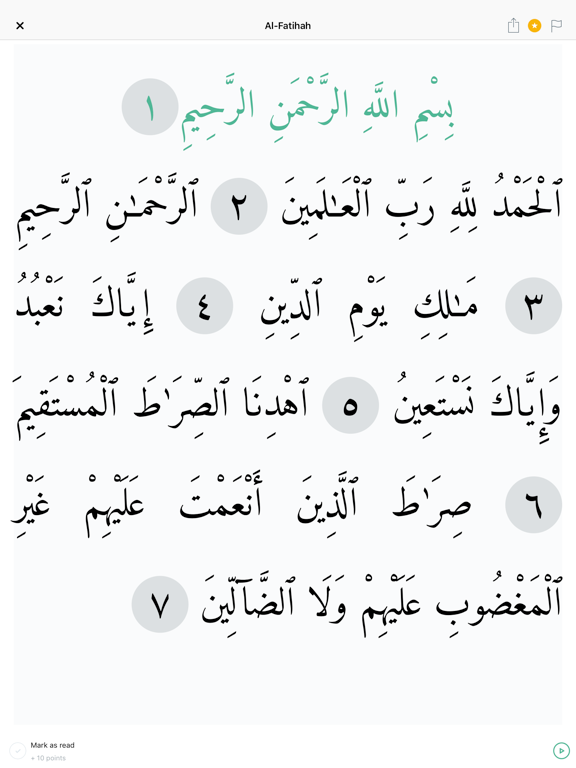 Al-Fatihah
بِسْمِ اللَّهِ الرَّحْمَنِ الرَّحِيمِ ١
ٱلْحَمْدُ لِلَّهِ رَبِّ ٱلْعَـٰلَمِينَ ٢ ٱلرَّحْمَـٰنِ ٱلرَّحِيمِ
٣ مَـٰلِكِ يَوْمِ ٱلدِّينِ ٤ إِيَّاكَ نَعْبُدُ
وَإِيَّاكَ نَسْتَعِينُ ٥ ٱهْدِنَا ٱلصِّرَٰطَ ٱلْمُسْتَقِيمَ
٦ صِرَٰطَ ٱلَّذِينَ أَنْعَمْتَ عَلَيْهِمْ غَيْرِ
ٱلْمَغْضُوبِ عَلَيْهِمْ وَلَا ٱلضَّآلِّينَ ٧
Mark as read
+ 10 points